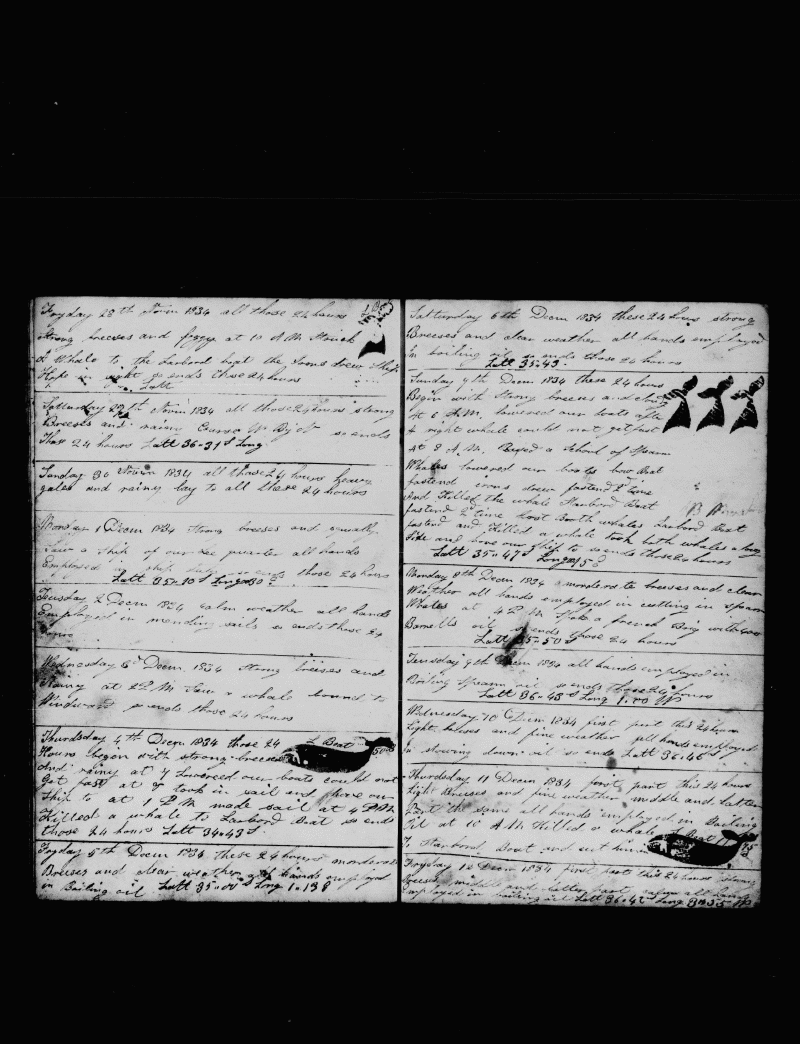 Fryday 28th Novm 1834 all those 24 hours
Strong breeses and foggy at 10 A M Struck
a Whale to the Larbord boat the Irons drew Ship
Hope in sight so ends those 24 hours
Latt
L Boat
Satturday 29th Novm 1834 all those 24 hours strong
Breeses and rainy so ends
Those 24 hours Latt 36=31 S Long
Sunday 30 Novm 1834 all those 24 hours heavy
gales and rainy lay to all these 24 hours
Monday 1 Decm 1834 strong breeses and squally
Saw a ship of our Lee quarter all hands
Employed in ship duty so ends those 24 hours
Latt 35=10 S Long
Tuesday 2 Decm 1834 calm weather all hands
Employed in mending sails so ends those 24
hours
Wednesday 3d Decm 1834 strong breeses and
Rainy at 2 P M Saw a whale bound to
Windward so ends those 24 hours
Thurdsday 4th Decm 1834 those 24
L Boat
50
Hours begin with strong breeses
And rainy at 7 Lowered our boats could not
Get fast at 9 took in sail and hove our
Ship to at 1 P M made sail at 4 P M
Killed a whale to Larbord Boat so ends
those 24 hours Latt 34=43 S
Fryday 5th Decm 1834 these 24 hours moderate
Breeses and clear weather all hands employed
in Boiling oil Latt 35=00 S Long 1=138
Satturday 6th Decm 1834 these 24 hours strong
Breeses and clear weather all hands employed
in boiling oil so ends those 24 hours
Latt 35=43
Sunday 7th Decm 1834 these 24 hours
Begin with Strong breeses and clear
At 6 A.M. lowered our boats after
a right whale could not get fast
At 8 A.M. Rased a School of Spearm
Whales lowered our boats bow Boat
fastend irons drew fastend 2 time
And Killed the whale Starbord Boat
fastend 2 time lost Both whales Larbord Boat
fastend and Killed a whale took both whales along
Side and hove our ship to so ends those 24 hours
Latt 35=47 S Long
Monday 8th Decm 1834 moderate breeses and clear
Weather all hands employed in cutting in spearm
Whales at 4 P.M Spoke a french Brig with 400
Barrells oil so ends those 24 hours
Latt 35=50 S
Tuesday 9th Decm 1834 all hands employed in
Boiling Spearm oil so ends those 24 hours
Latt 36=43 S Long 1=00 W
Wednesday 10 Decm 1834 first part this 24 hours
Light breeses and fine weather all hands employed
in stowing down oil so ends Latt 36=46 S
Thurdsday 11 Decm 1834 first part this 24 hours
Light Breeses and fine weather middle and Latter
Part the same all hands employed in Boiling
Oil at 10 A M Killed a whale
To Starbord Boat and cut him in
Fryday 12 Decm 1834 first part this 24 hours strong
breeses middle and latter part calm all hands
employed in boiling oil Latt 36=42 S Long